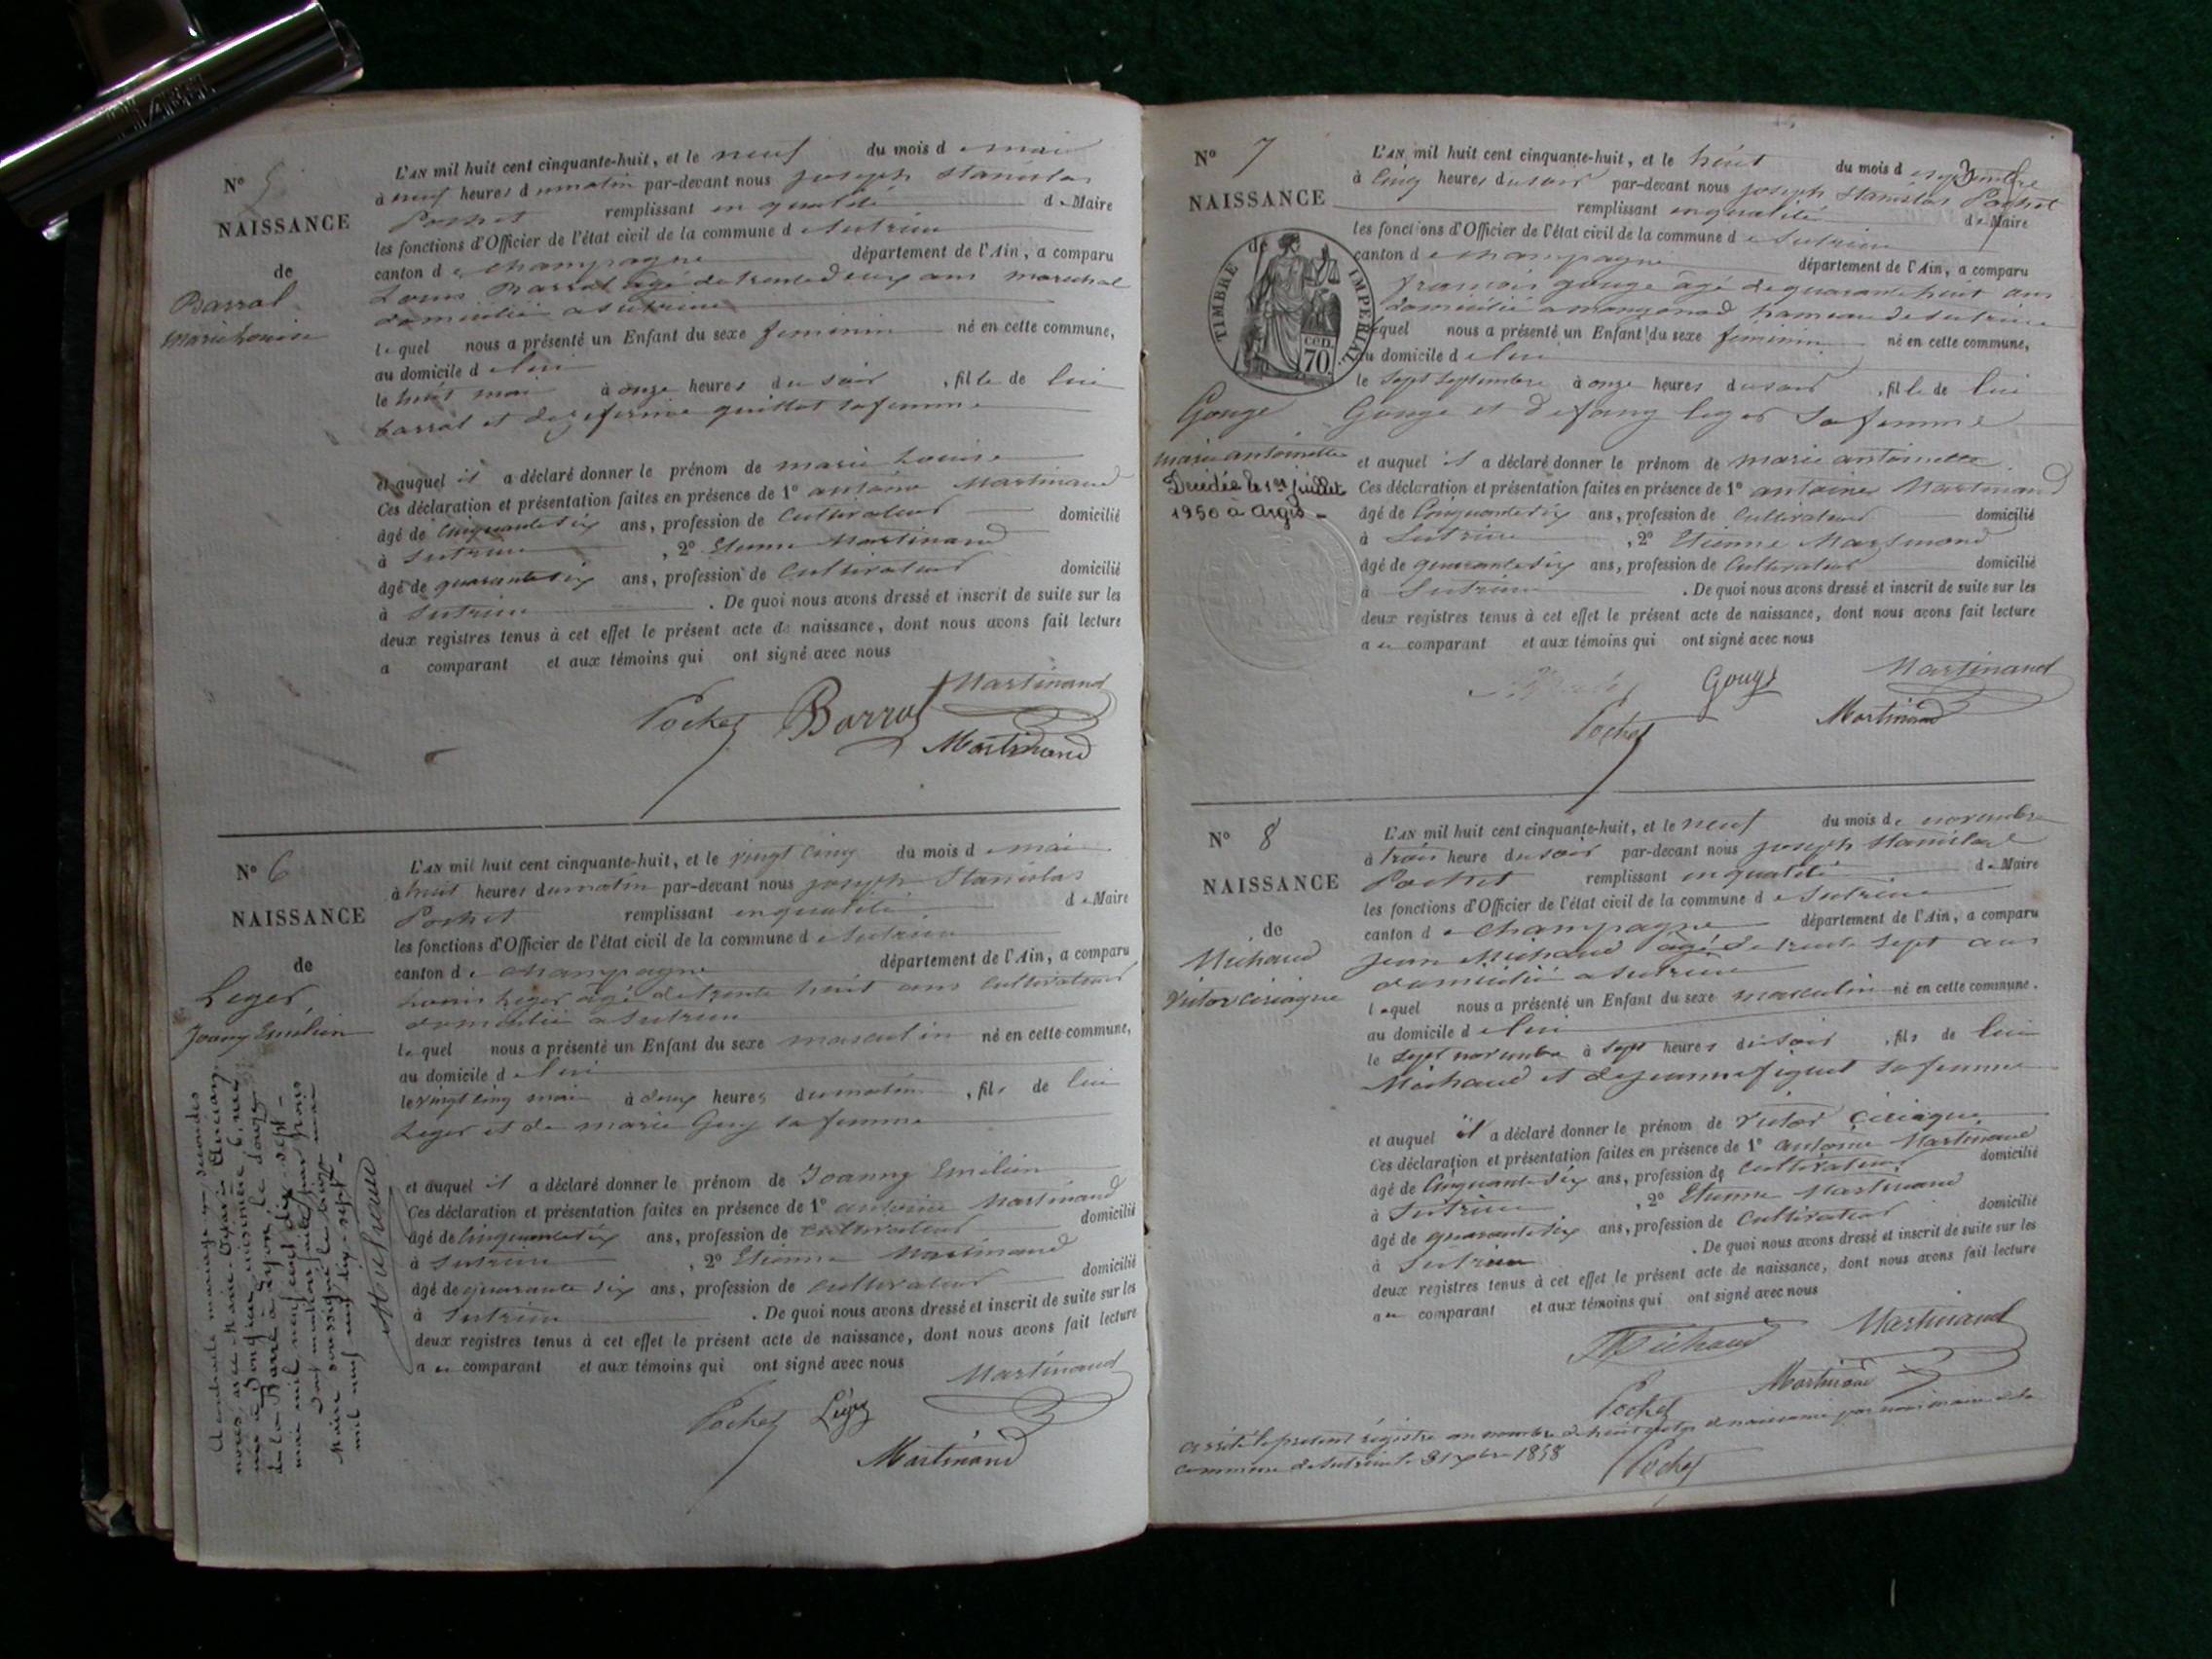 N° 5
NAISSANCE
de
Barral
Marie Louise
L'AN mil huit cent cinquante-huit, et le neuf du mois de mai
à neuf heures du matin par-devant nous joseph Stanislas
Pochet remplissant en qualité de Maire
les fonctions d'Officier de l'état civil de la commune de Sutrieu
canton de champagne département de l'Ain, a comparu
Louis Barral âgé de trente deux ans marechal
domicilié a Sutrieu
lequel nous a présenté un Enfant du sexe feminin né en cette commune,
au domicile de lui
le huit mai à onze heures du soir, fille de lui
barral et de guillot sa femme
et auquel il a déclaré donner le prénom de marie Louise
Ces déclaration et présentation faites en présence de 1° antoine Martinand
âgé de Cinquante six ans, profession de Cultivateur domicilié
à Sutrieu, 2° Etienne Martinand
âgé de quarante six ans, profession de Cultivateur domicilié
à Sutrieu. De quoi nous avons dressé et inscrit de suite sur les
deux registres tenus à cet effet le présent acte de naissance, dont nous avons fait lecture
a comparant et aux témoins qui ont signé avec nous
Pochet Barral Martinand
Martinand
N° 6
NAISSANCE
de
Leger
Joanny Emilien
L'AN mil huit cent cinquante-huit, et le vingt cinq du mois de mai
à huit heures du matin par-devant nous joseph Stanislas
Pochet remplissant en qualité de Maire
les fonctions d'Officier de l'état civil de la commune de Sutrieu
canton de champagne département de l'Ain, a comparu
Louis Leger âgé de trente huit ans Cultivateur
domicilié a Sutrieu
lequel nous a présenté un Enfant du sexe masculin né en cette commune,
au domicile de lui
le vingt cinq mai à deux heures du matin, fils de lui
Leger et de marie Guy sa femme
et auquel il a déclaré donner le prénom de Joanny Emilien
Ces déclaration et présentation faites en présence de 1° antoine Martinand
âgé de Cinquante six ans, profession de Cultivateur domicilié
à Sutrieu, 2° Etienne Martinand
âgé de quarante six ans, profession de cultivateur domicilié
à Sutrieu. De quoi nous avons dressé et inscrit de suite sur les
deux registres tenus à cet effet le présent acte de naissance, dont nous avons fait lecture
a u comparant et aux témoins qui ont signé avec nous
Pochet Léger Martinand
Martinand
A contracté mariage en secondes
noces, avec Marie
née à cuisinière
à Lyon le douze
mai mil neuf cent dix-sept -
Dont mention faite par nous
Maire soussigné le mai
mil neuf cent dix-sept -
N° 7
NAISSANCE
de
TIMBRE IMPERIAL
CEN.
70.
Gouge
marie antoinette
Decédée le 1er juillet
1950 à Argis -
L'AN mil huit cent cinquante-huit, et le huit du mois de septembre
à Cinq heures du soir par-devant nous joseph Stanislas Pochet
remplissant en qualité de Maire
les fonctions d'Officier de l'état civil de la commune de Sutrieu
canton de champagne département de l'Ain, a comparu
françois gouge âgé de quarante huit ans
domicilié a hameau de Sutrieu
lequel nous a présenté un Enfant du sexe feminin né en cette commune,
au domicile de lui
le sept Septembre à onze heures du soir, fille de lui
Gouge et de fany leger Sa femme
et auquel il a déclaré donner le prénom de marie antoinette
Ces déclaration et présentation faites en présence de 1° antoine Martinand
âgé de Cinquante six ans, profession de Cultivateur domicilié
à Sutrieu, 2° Etienne Martinand
âgé de quarante six ans, profession de Cultivateur domicilié
à Sutrieu. De quoi nous avons dressé et inscrit de suite sur les
deux registres tenus à cet effet le présent acte de naissance, dont nous avons fait lecture
a u comparant et aux témoins qui ont signé avec nous
Gouge Martinand
Pochet Martinand
N° 8
NAISSANCE
de
Michaud
Victor Ciriaque
L'AN mil huit cent cinquante-huit, et le neuf du mois de novembre
à trois heure du soir par-devant nous joseph Stanislas
Pochet remplissant en qualité de Maire
les fonctions d'Officier de l'état civil de la commune de Sutrieu
canton de champagne département de l'Ain, a comparu
jean Michaud âgé de trente Sept ans
domicilié a Sutrieu
lequel nous a présenté un Enfant du sexe masculin né en cette commune.
au domicile de lui
le Sept novembre à Sept heures du Soir, fils de lui
Michaud et de jeanne figuet sa femme
et auquel il a déclaré donner le prénom de Victor Ciriaque
Ces déclaration et présentation faites en présence de 1° antoine Martinand
âgé de Cinquante Six ans, profession de Cultivateur domicilié
à Sutrieu, 2° Etienne Martinand
âgé de quarante six ans, profession de Cultivateur domicilié
à Sutrieu. De quoi nous avons dressé et inscrit de suite sur les
deux registres tenus à cet effet le présent acte de naissance, dont nous avons fait lecture
a u comparant et aux témoins qui ont signé avec nous
Michaud Martinand
Pochet Martinand
arrêté le present régistre au nombre de huit actes de naissance par nous maire de la
commune de Sutrieu le 31 xbre 1858
Pochet